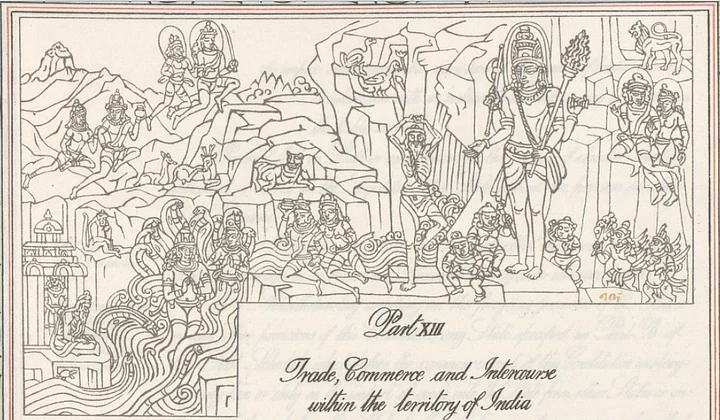 Part XIII
Trade, Commerce and Intercourse
within the territory of India